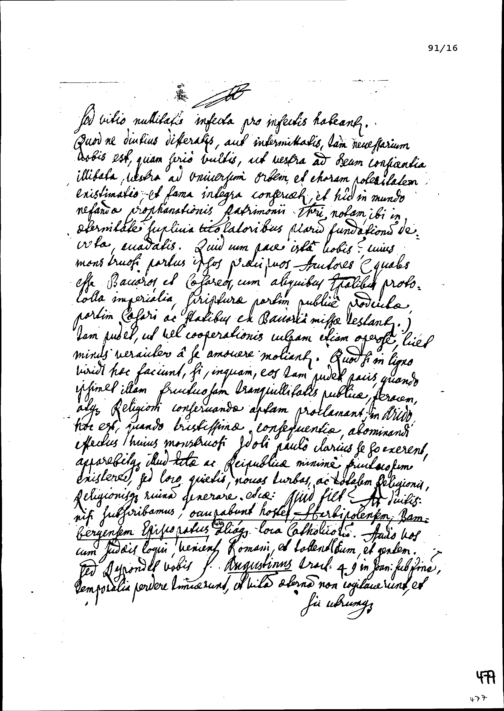 91/16
sed vitio nullitatis infecta pro infectis habeantur.
Quod ne diutius differatis, aut intermittatis, tam necessarium
vobis est, quam serio vultis, ut vestra ad Deum conscientia
illibata, vestra ad universum orbem et choram posteritatem
existimatio, et fama integra conservetur, et hic in mundo
nefanda prophanationis Patrimonii Christi, notam, ibi in
aeternitate supplicia violatoribus piarum fundationum de=
creta, evadatis. Quid cum pace ista vobis? cuius
monstruosi partus ipsos praecipuos Authores (quales
esse Bavaros et Caesareos, cum aliquibus Statibus proto=
colla imperialia, scriptura partim publice producta
partim Caesari ac Statibus ex Bavaria missa testantur.)
tam pudet, ut vel cooperationis culpam etiam operose, licet
minus veraciter à se amovere moliantur. Quod si in ligno
viridi hoc faciunt, si, inquam, eos tam pudet pacis, quando
illam fructuosam tranquillitatis publicae, feracem,
atque Religioni conservandae aptam proclamant, in arido,
hoc est, quando tristissimae consequentiae, abominandi
effectus huius monstruosi Idoli paulo clarius se exerent,
apparebitque illud toti ac Reipublicae minime fructuosum
existere, sed loco quietis, novas turbas, ac totalem Religionis,
Religionisque ruinam generare. etc: quid fiet? At dicitis:
nisi subscribamus, occupabunt hostes Herbipolensem, Bam=
bergensem Episcopatus aliaque loca Catholicorum. Audio vos
cum Judaeis loqui, venient Romani, et tollent locum, et gentem.
Sed respondet vobis S. Augustinus tract. 49 in Joan: sub fine,
temporalia perdere timuerunt, et vitam aeternam non cogitaverunt, et
sic utrumque
477
477